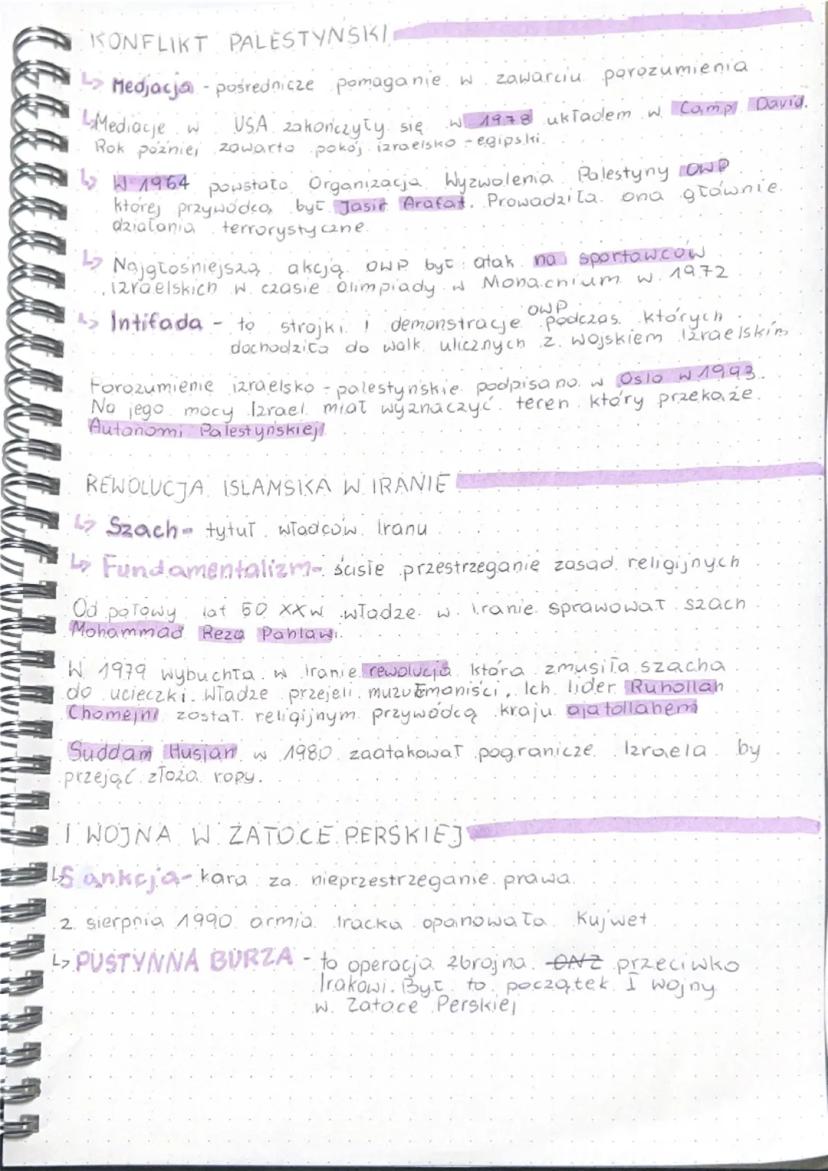 KONFLIKT PALESTYŃSKI
↳ Medjacja - pośrednicze pomaganie w zawarciu porozumienia
↳ Mediacje w USA zakończyły się w 1978 układem w Camp David.
Rok później zawarto pokój izraelsko-egipski.
↳ W 1964 powstała Organizacja Wyzwolenia Palestyny OWP
której przywódcą był Jasir Arafat. Prowadziła ona głównie
działania terrorystyczne
↳ Najgłośniejszą akcją OWP był atak na sportawców
izraelskich w czasie Olimpiady w Monachium w 1972
↳ Intifada - to strojki i demonstracje OWP podczas których
dochodziło do walk ulicznych z wojskiem Izraelskim
Porozumienie izraelsko-palestyńskie podpisano w Oslo w 1993.
Na jego mocy Izrael miał wyznaczyć teren który przekaże
Autonomi Palestyńskiej
REWOLUCJA ISLAMSKA W IRANIE
↳ Szach - tytuł władców Iranu
↳ Fundamentalizm - ścisłe przestrzeganie zasad religijnych
Od połowy lat 50 XXw władze w Iranie sprawował szach
Mohammad Reza Pahlawi.
W 1979 wybuchła w Iranie rewolucja która zmusiła szacha
do ucieczki. Władze przejeli muzułmaniści. Ich lider Ruhollah
Chomejni został religijnym przywódcą kraju ajatollahem
Suddam Husjan w 1980 zaatakował pogranicze Izraela by
przejąć złoża ropy.
I WOJNA W ZATOCE PERSKIEJ
↳ Sankcja - kara za nieprzestrzeganie prawa
2 sierpnia 1990 armia Iracka opanowała Kujwet
↳ PUSTYNNA BURZA - to operacja zbrojna ONZ przeciwko
Irakowi. Był to początek I wojny
w Zatoce Perskiej